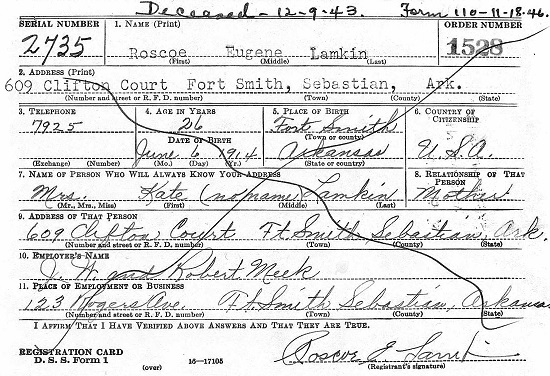 Deceased - 12-9-43. Form 110-11-18-46.
SERIAL NUMBER 1. NAME (Print) ORDER NUMBER
2735 Roscoe Eugene Lamkin 1528
(First) (Middle) (Last)
2. ADDRESS (Print)
609 Clifton Court Fort Smith, Sebastian, Ark.
(Number and street or R. F. D. number) (Town) (County) (State)
3. TELEPHONE 4. AGE IN YEARS 5. PLACE OF BIRTH 6. COUNTRY OF CITIZENSHIP
7925 26 Fort Smith
DATE OF BIRTH (Town or county)
June 6, 1914 Arkansas U.S.A.
(Exchange) (Number) (Mo.) (Day) (Yr.) (State or country)
7. NAME OF PERSON WHO WILL ALWAYS KNOW YOUR ADDRESS 8. RELATIONSHIP OF THAT PERSON
Mrs. Kate (no name) Lamkin Mother
(Mr., Mrs., Miss) (First) (Middle) (Last)
9. ADDRESS OF THAT PERSON
609 Clifton Court Ft. Smith Sebastian, Ark.
(Number and street or R. F. D. number) (Town) (County) (State)
10. EMPLOYER'S NAME
J. W. and Robert Meek
11. PLACE OF EMPLOYMENT OR BUSINESS
123 Rogers Ave. Ft. Smith Sebastian, Arkansas
(Number and street or R. F. D. number) (Town) (County) (State)
I AFFIRM THAT I HAVE VERIFIED ABOVE ANSWERS AND THAT THEY ARE TRUE.
REGISTRATION CARD
D. S. S. Form 1 (over) 16—17105 Roscoe E. Lamkin
(Registrant's signature)